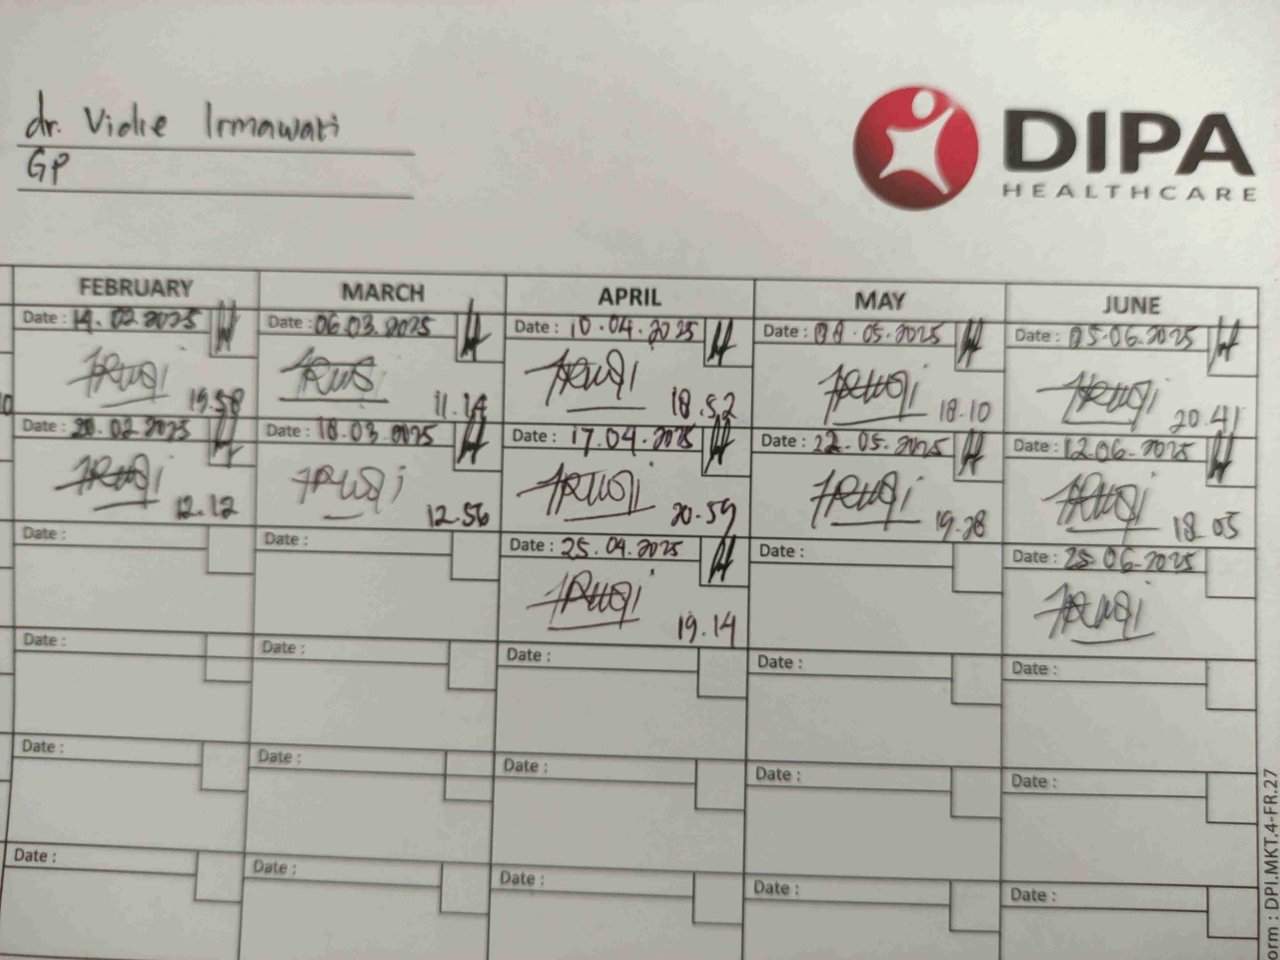 dr. Vidie Irmawati
GP
DIPA
HEALTHCARE
FEBRUARY MARCH APRIL MAY JUNE
Date : 14.02.2025 Date : 06.03.2025 Date : 10.04.2025 Date : .05.2025 Date : 05.06.2025
19.58 11.14 18.52 18.10 20.41
Date : 20.02.2025 Date : 18.03.2025 Date : 17.04.2025 Date : 22.05.2025 Date : 12.06.2025
12.12 12.56 20.59 19.28 18.05
Date : Date : Date : 25.04.2025 Date : Date : 25.06.2025
19.14
Date : Date : Date : Date : Date :
Date : Date : Date : Date : Date :
Date : Date : Date : Date : Date :
orm : DPI.MKT.4-FR.27